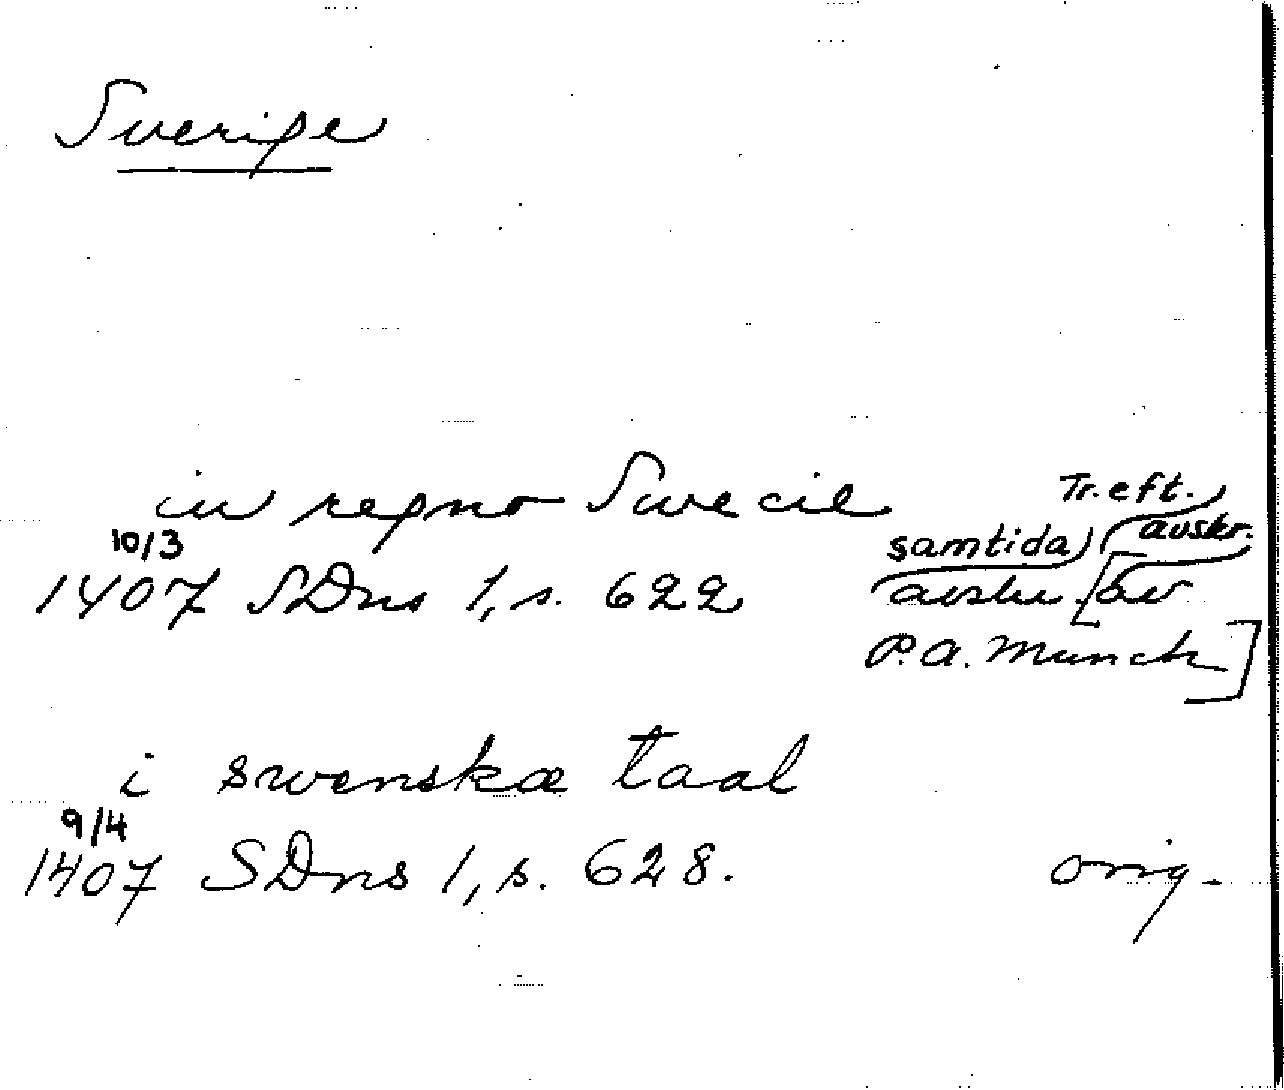 Sverige
in regno Swecie
10/3
1407 SDns 1, s. 622
Tr. eft. avskr.
samtida
avskr [av
P.A. Munch]
i swenskæ taal
9/4
1407 SDns 1, s. 628.
orig.